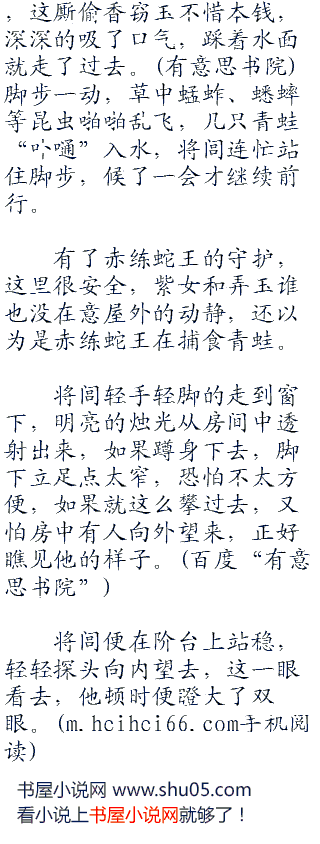 ，这厮偷香窃玉不惜本钱，
深深的吸了口气，踩着水面
就走了过去。(有意思书院)
脚步一动，草中蜢蚱、蟋蟀
等昆虫啪啪乱飞，几只青蛙
“卟嗵”入水，将闾连忙站
住脚步，候了一会才继续前
行。
有了赤练蛇王的守护，
这里很安全，紫女和弄玉谁
也没在意屋外的动静，还以
为是赤练蛇王在捕食青蛙。
将闾轻手轻脚的走到窗
下，明亮的烛光从房间中透
射出来，如果蹲身下去，脚
下立足点太窄，恐怕不太方
便，如果就这么攀过去，又
怕房中有人向外望来，正好
瞧见他的样子。(百度“有意
思书院”)
将闾便在阶台上站稳，
轻轻探头向内望去，这一眼
看去，他顿时便瞪大了双
眼。(m.hcihci66.com手机阅
读)
书屋小说网 www.shu05.com
看小说上书屋小说网就够了！